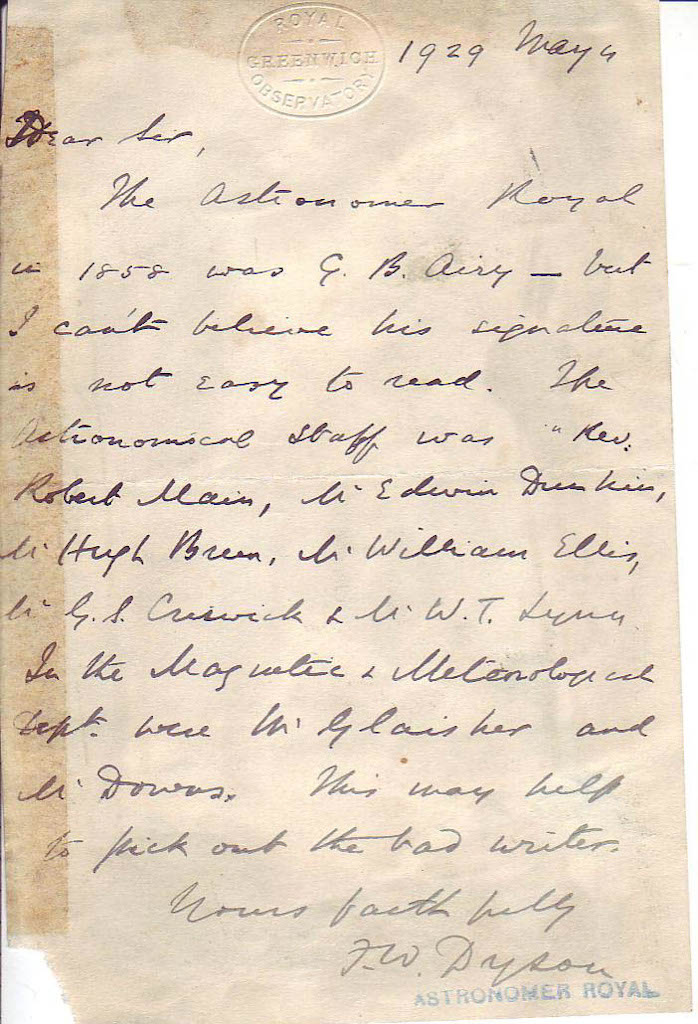 ROYAL
GREENWICH
OBSERVATORY
1929 May 4
Dear Sir,
The Astronomer Royal
in 1858 was G. B. Airy — but
I can't believe his signature
is not easy to read. The
Astronomical Staff was "Rev.
Robert Main, Mr Edwin Dunkin,
Mr Hugh Breen, Mr William Ellis,
Mr G. S. Criswick & Mr W. T. Lynn
In the Magnetic & Meteorological
Dept. were Mr Glaisher and
Mr Downs. This may help
to pick out the bad writer.
Yours faithfully
F. W. Dyson
ASTRONOMER ROYAL